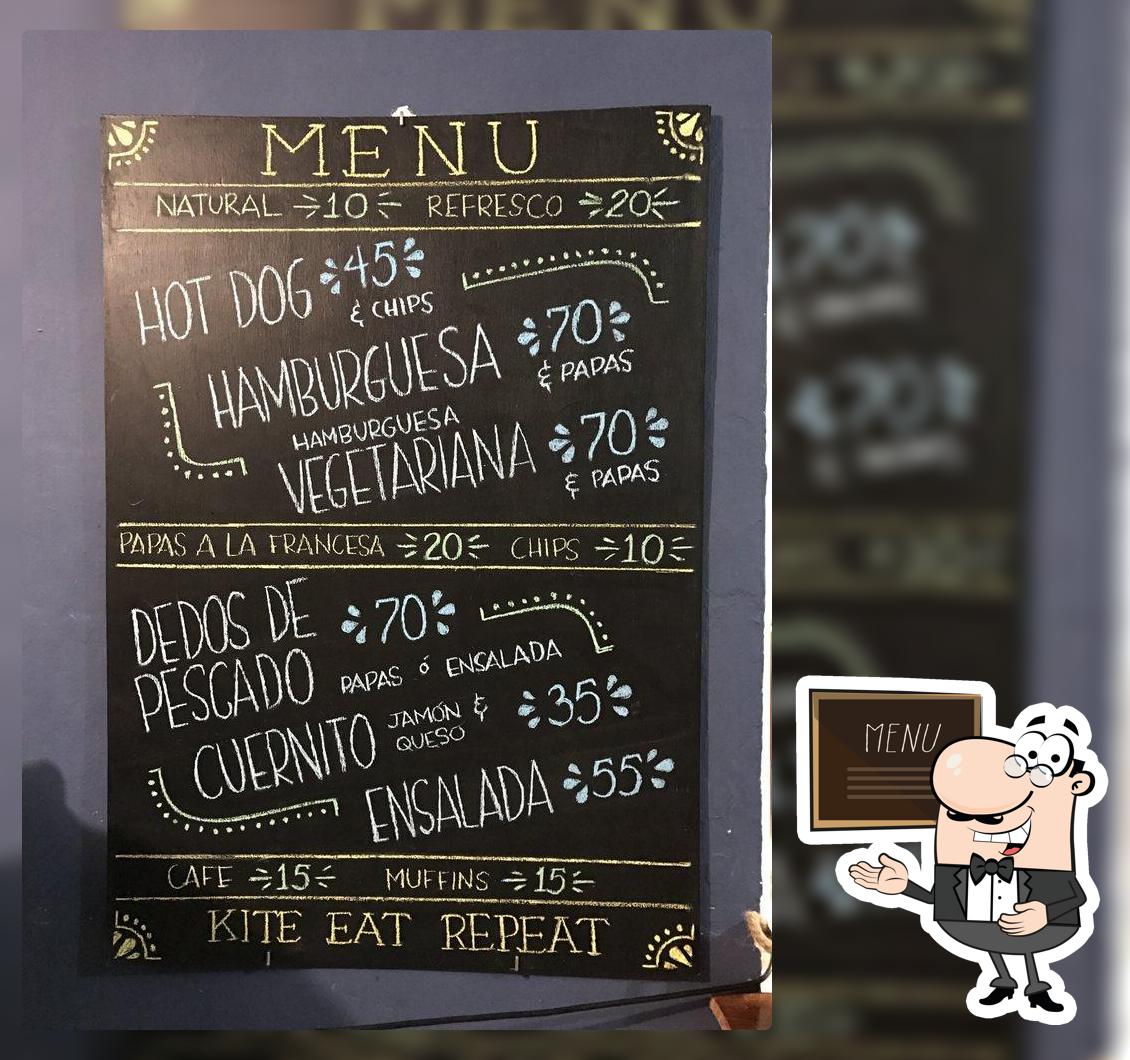 MENU
NATURAL 10 REFRESCO 20
HOT DOG 45
& CHIPS
HAMBURGUESA 70
& PAPAS
HAMBURGUESA
VEGETARIANA 70
& PAPAS
PAPAS A LA FRANCESA 20 CHIPS 10
DEDOS DE
PESCADO 70
PAPAS ó ENSALADA
CUERNITO JAMÓN &
QUESO 35
ENSALADA 55
CAFE 15 MUFFINS 15
KITE EAT REPEAT
MENU